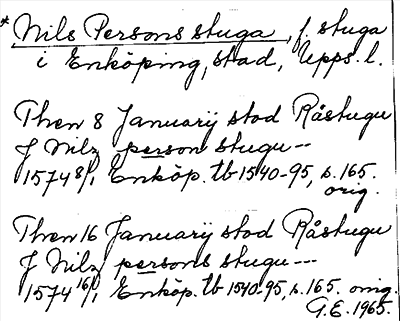 * Nils Persons stuga, f. stuga
i Enköping, stad, Upps. l.
Then 8 Januarij stod Råstugu
J Nilz person stugu --
1574 8/1, Enköp. tb 1540-95, s. 165.
orig.
Then 16 Januarij stod Råstugu
J Nilz persons stugu ---
1574 16/1, Enköp. tb 1540-95, s. 165. orig.
G.E. 1965.